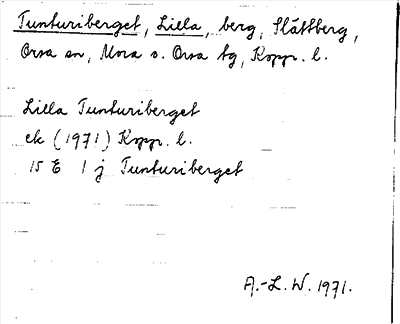 Tunturiberget, Lilla, berg, Slättberg,
Orsa sn, Mora o. Orsa tg, Kopp. l.
Lilla Tunturiberget
ek (1971) Kopp. l.
15 E 1 j Tunturiberget
A.-L. W. 1971.